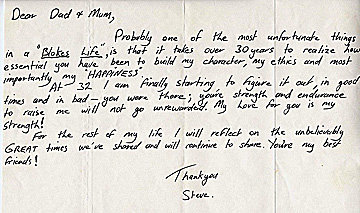 Dear Dad & Mum,
Probably one of the most unfortunate things
in a "Blokes Life", is that it takes over 30 years to realize how
essential you have been to build my character, my ethics and most
importantly my "HAPPINESS".
At 32 I am finally starting to figure it out, in good
times and in bad - you were there; you're strength and endurance
to raise me will not go unrewarded! My Love for you is my
Strength!
For the rest of my life I will reflect on the unbelievably
GREAT times we've shared and will continue to share. You're my best
friends!
Thankyou
Steve.